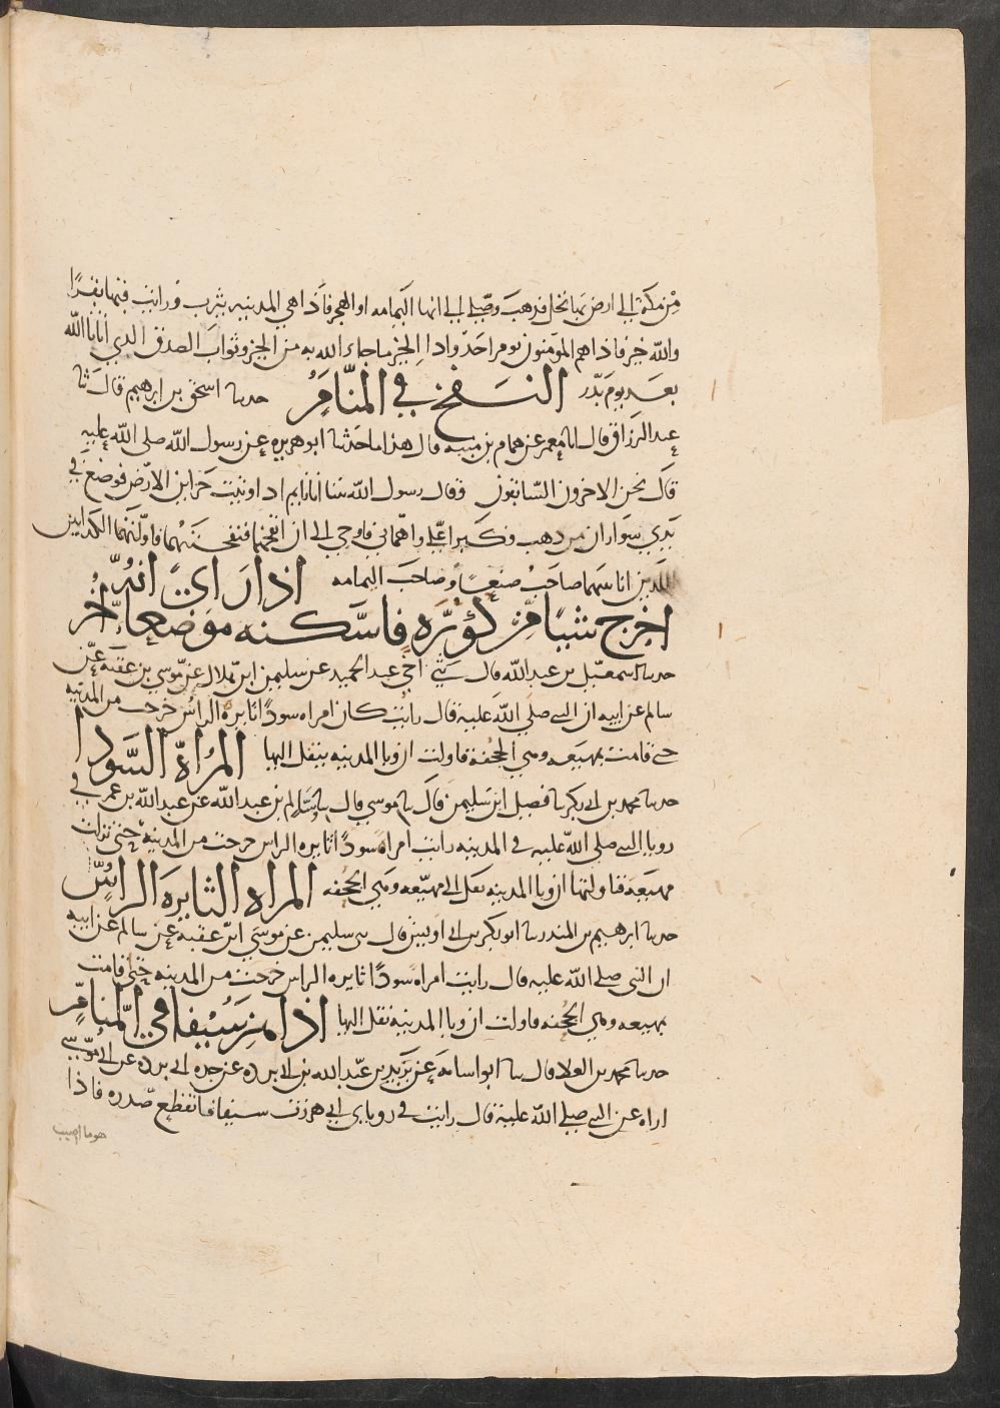 من مكة الي ارض بها نخل فذهب وهلي الي انها اليمامه او الهجر فاذا هي المدينه يثرب ورايت فيها بقرا
والله خير فاذا هم المؤمنون يوم احد واذا الخير ما جاء الله به من الخير وثواب الصدق الذي اتانا الله
بعد يوم بدر النفخ في المنام حدثنا اسحق بن ابرهيم قال ثنا
عبد الرزاق قال انا معمر عن همام بن منبه قال هذا ما حدثنا ابو هريره عن رسول الله صلى الله عليه
قال نحن الاخرون السابقون وقال رسول الله بينا انا نايم اذ اوتيت خزاين الارض فوضع في
يدي سواران من ذهب فكبرا علي واهماني فاوحي الي ان انفخهما فنفختهما فاولتهما الكذابين
اللذين انا بينهما صاحب صنعا وصاحب اليمامه اذا راى انه
اخرج شيا من كورة فاسكنه موضعا اخر
حدثنا اسمعيل بن عبد الله قال ثني اخي عبد الحميد عن سليمن ابن بلال عن موسي بن عقبه عن
سالم عن ابيه ان النبي صلي الله عليه قال رايت كان امراه سودا ثايره الراس خرجت من المدينه
حتى قامت بمهيعه وهي الجحفه فاولت ان وبا المدينه ينقل اليها المراة السودا
حدثنا محمد بن ابي بكر ثنا فضيل ابن سليمن قال ثنا موسي قال ثنا سالم بن عبد الله عن عبد الله بن عمر في
رويا النبي صلي الله عليه في المدينه رايت امراه سودا ثايره الراس خرجت من المدينه حتى نزلت
مهيعه فتاولتها ان وبا المدينه نقل الي مهيعه وهي الجحفه المراه الثايره الراس
حدثنا ابرهيم بن المنذر ثنا ابو بكر بن ابي اويس قال ثني سليمن عن موسي ابن عقبة عن سالم عن ابيه
ان النبي صلي الله عليه قال رايت امراه سودا ثايره الراس خرجت من المدينه حتى قامت
بمهيعه وهي الجحفه فاولت ان وبا المدينه نقل اليها اذا هز سيفا في المنام
حدثنا محمد بن العلا قال ثنا ابو اسامه عن بريد بن عبد الله بن ابي برده عن جده ابي برده عن ابي موسي
اراه عن النبي صلي الله عليه قال رايت في روياي اني هززت سيفا فانقطع صدره فاذا
هو ما اصيب